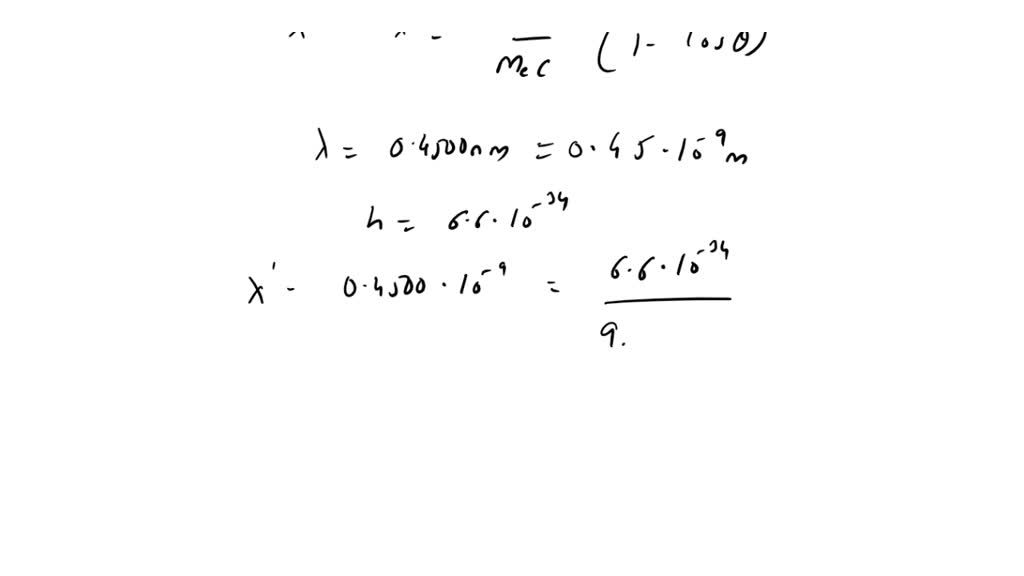 λ' - λ = ― / mₑc (1 - cosθ)
λ = 0.4500nm = 0.45 · 10⁻⁹ m
h = 6.6 · 10⁻³⁴
λ' - 0.4500 · 10⁻⁹ = 6.6 · 10⁻³⁴ / 9.